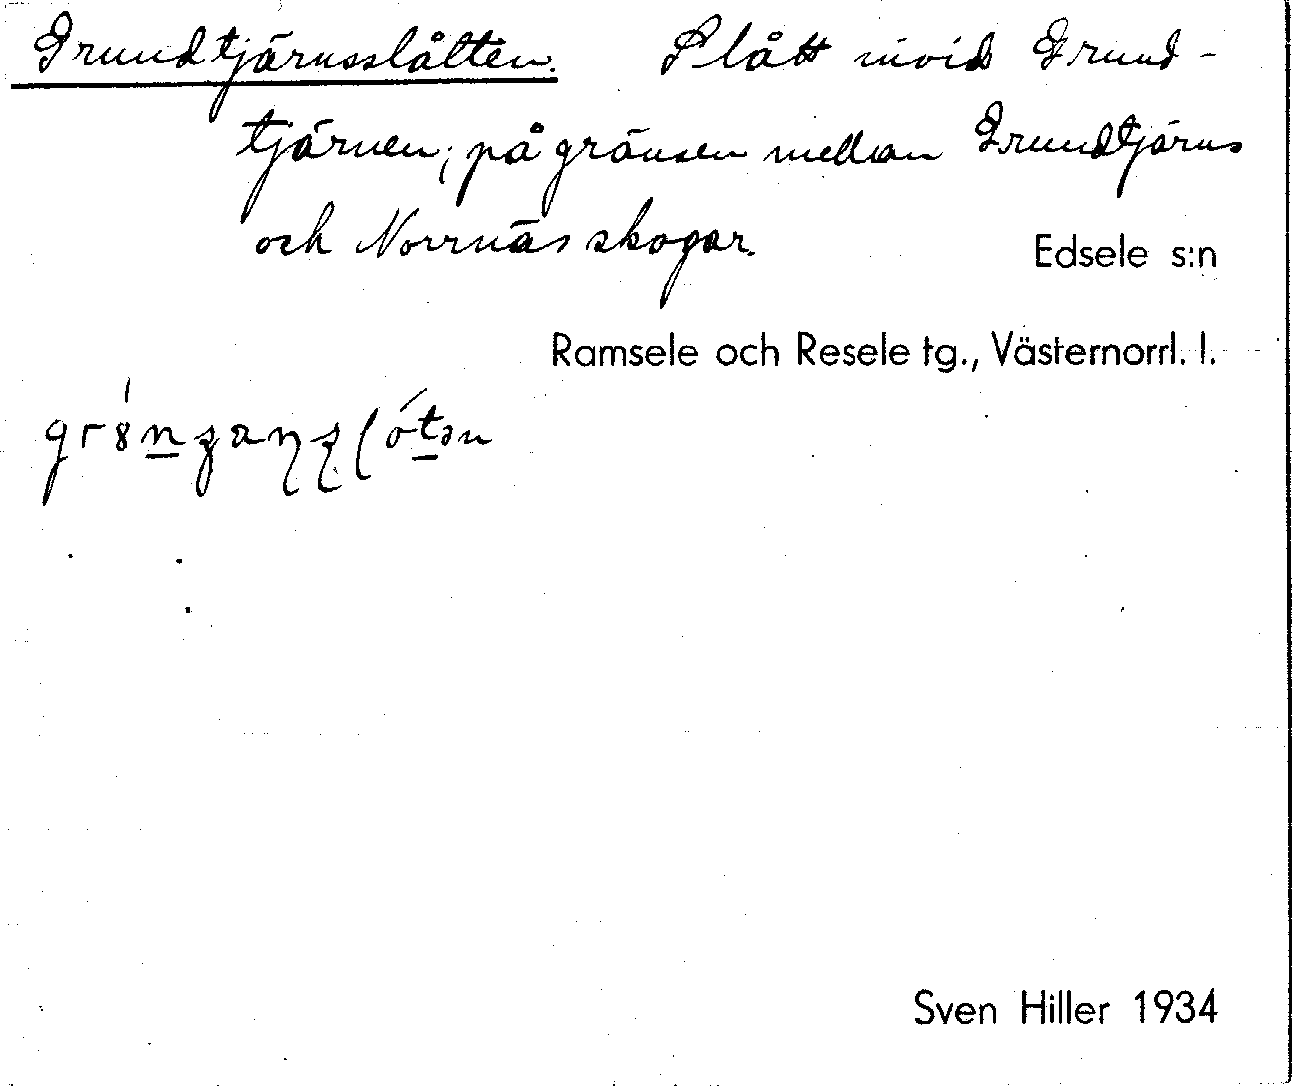 Grundtjärnsslåtten. Slått invid Grund-
tjärnen, på gränsen mellan Grundtjärns
och Norrnäs skogar.
Edsele s:n
Ramsele och Resele tg., Västernorrl. l.
Sven Hiller 1934